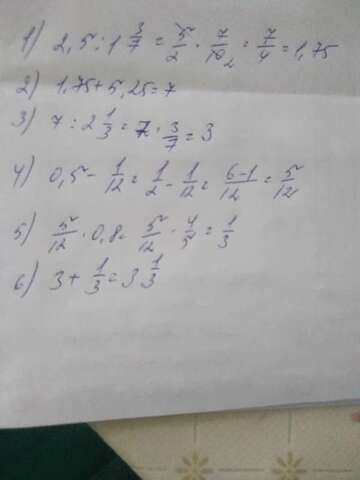 1) 2,5 : 1 3/7 = 5/2 · 7/10 2 = 7/4 = 1,75
2) 1,75 + 5,25 = 7
3) 7 : 2 1/3 = 7 · 3/7 = 3
4) 0,5 - 1/12 = 1/2 - 1/12 = 6-1/12 = 5/12
5) 5/12 · 0,8 = 5/12 · 4/5 = 1/3
6) 3 + 1/3 = 3 1/3